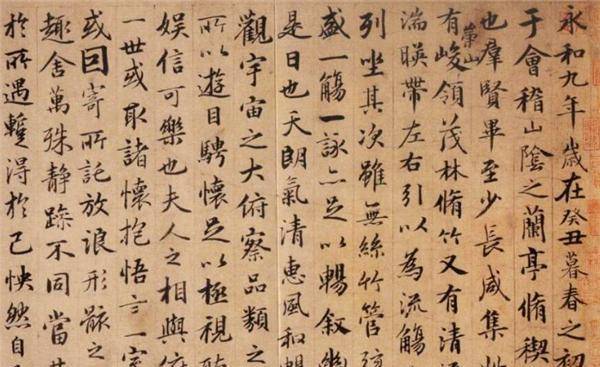 永和九年歲在癸丑暮春之初
于會稽山陰之蘭亭脩禊
也羣賢畢至少長咸集此
崇山
有峻領茂林脩竹又有清
湍暎帶左右引以為流觴
列坐其次雖無絲竹管弦
盛一觴一詠亦足以暢叙幽
是日也天朗氣清惠風和暢
觀宇宙之大俯察品類之
所以遊目騁懷足以極視聽
娛信可樂也夫人之相與俯
一世或取諸懷抱悟言一室
或因寄所託放浪形骸之
趣舍萬殊靜躁不同當其
於所遇蹔得於己怏然自